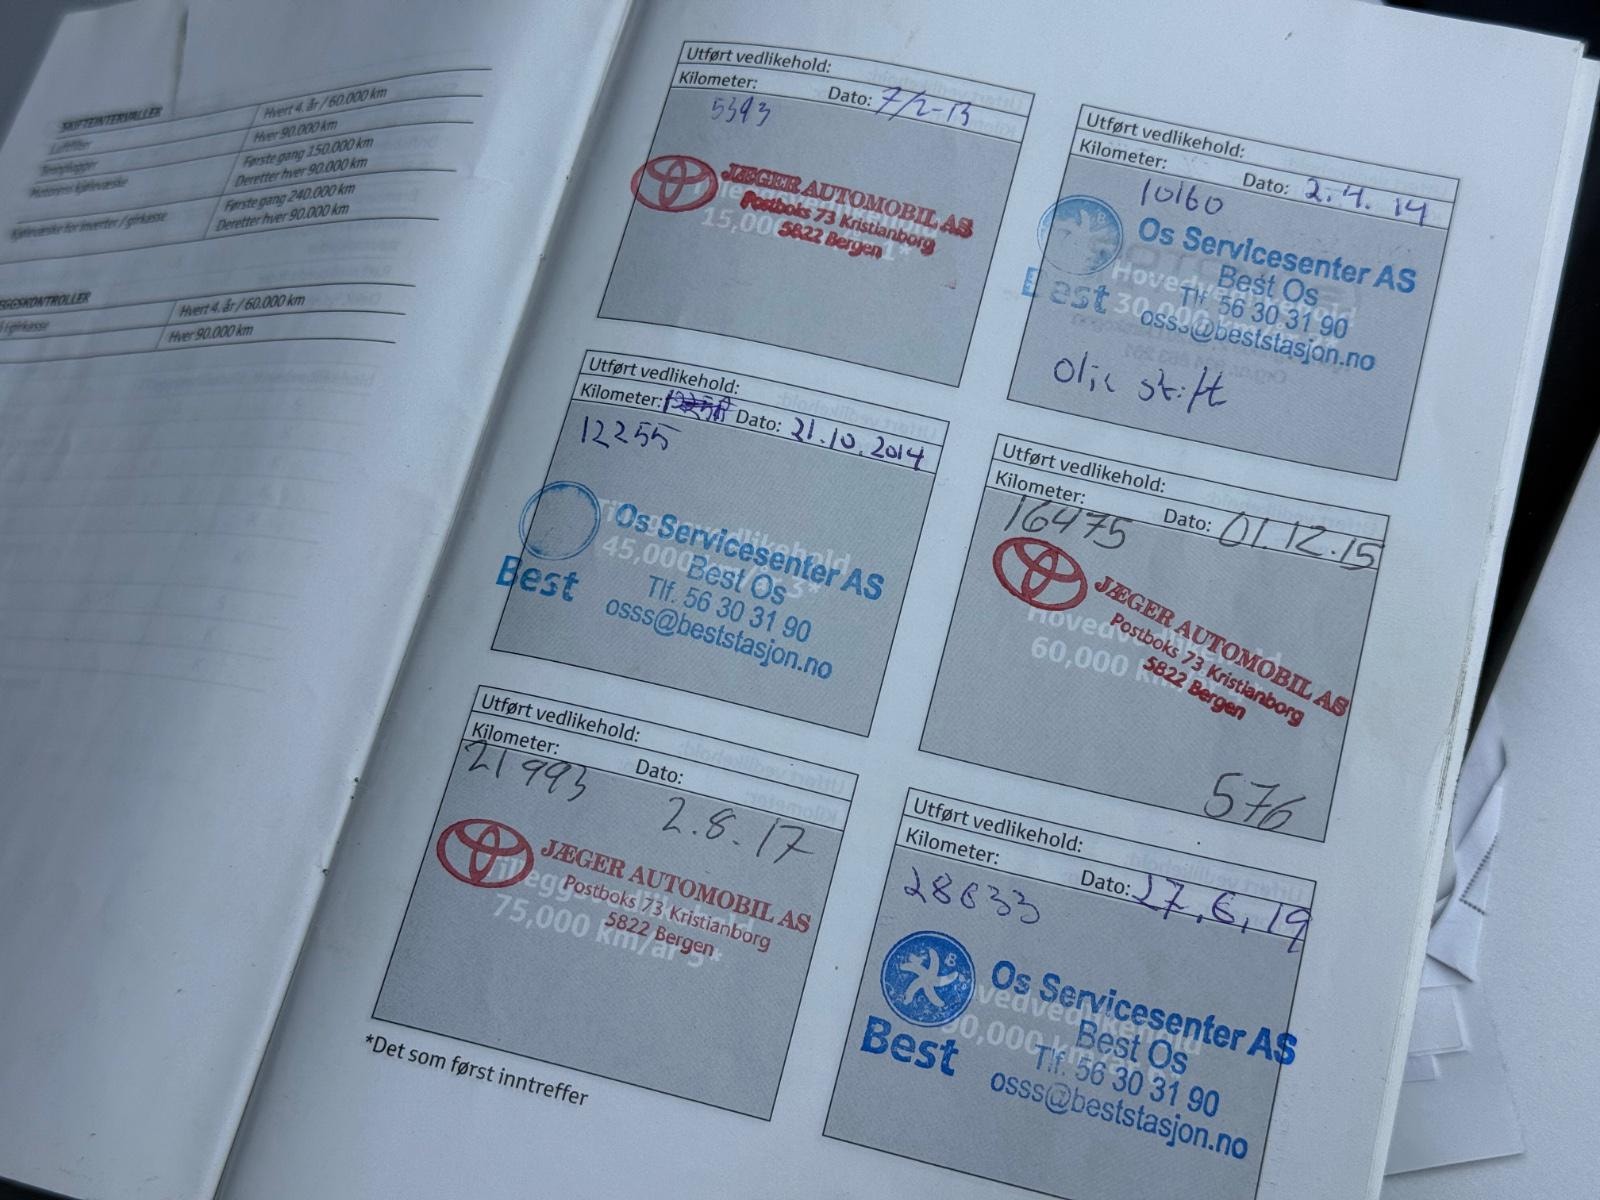 SKIFTEINTERVALLER
Luftfilter
Hvert 4. år / 60.000 km
Tennplugger
Hver 90.000 km
Motorens kjølevæske
Første gang 150.000 km
Deretter hver 90.000 km
Kjølevæske for inverter / girkasse
Første gang 240.000 km
Deretter hver 90.000 km
Hvert 4. år / 60.000 km
girkasse
Hver 90.000 km
Utført vedlikehold:
Kilometer:
Dato: 7/2-13
5393
JÆGER AUTOMOBIL AS
Postboks 73 Kristianborg
5822 Bergen
15,000
Utført vedlikehold:
Kilometer:
Dato: 2.4.14
10160
Os Servicesenter AS
Best Os
Tlf. 56 30 31 90
osss@beststasjon.no
Best
Hovedvedlikehold
30,000
Olje skift
Utført vedlikehold:
Kilometer:
Dato: 21.10.2014
12255
Os Servicesenter AS
Best Os
Tlf. 56 30 31 90
osss@beststasjon.no
Best
Tilleggsvedlikehold
45,000 km/år 3*
Utført vedlikehold:
Kilometer:
16475
Dato: 01.12.15
JÆGER AUTOMOBIL AS
Postboks 73 Kristianborg
5822 Bergen
Hovedvedlikehold
60,000 km
576
Utført vedlikehold:
Kilometer:
21993
Dato:
2.8.17
JÆGER AUTOMOBIL AS
Postboks 73 Kristianborg
5822 Bergen
Tilleggsvedlikehold
75,000 km/år 5*
Utført vedlikehold:
Kilometer:
Dato: 27,6,19
28833
Os Servicesenter AS
Best Os
Tlf. 56 30 31 90
osss@beststasjon.no
Best
*Det som først inntreffer